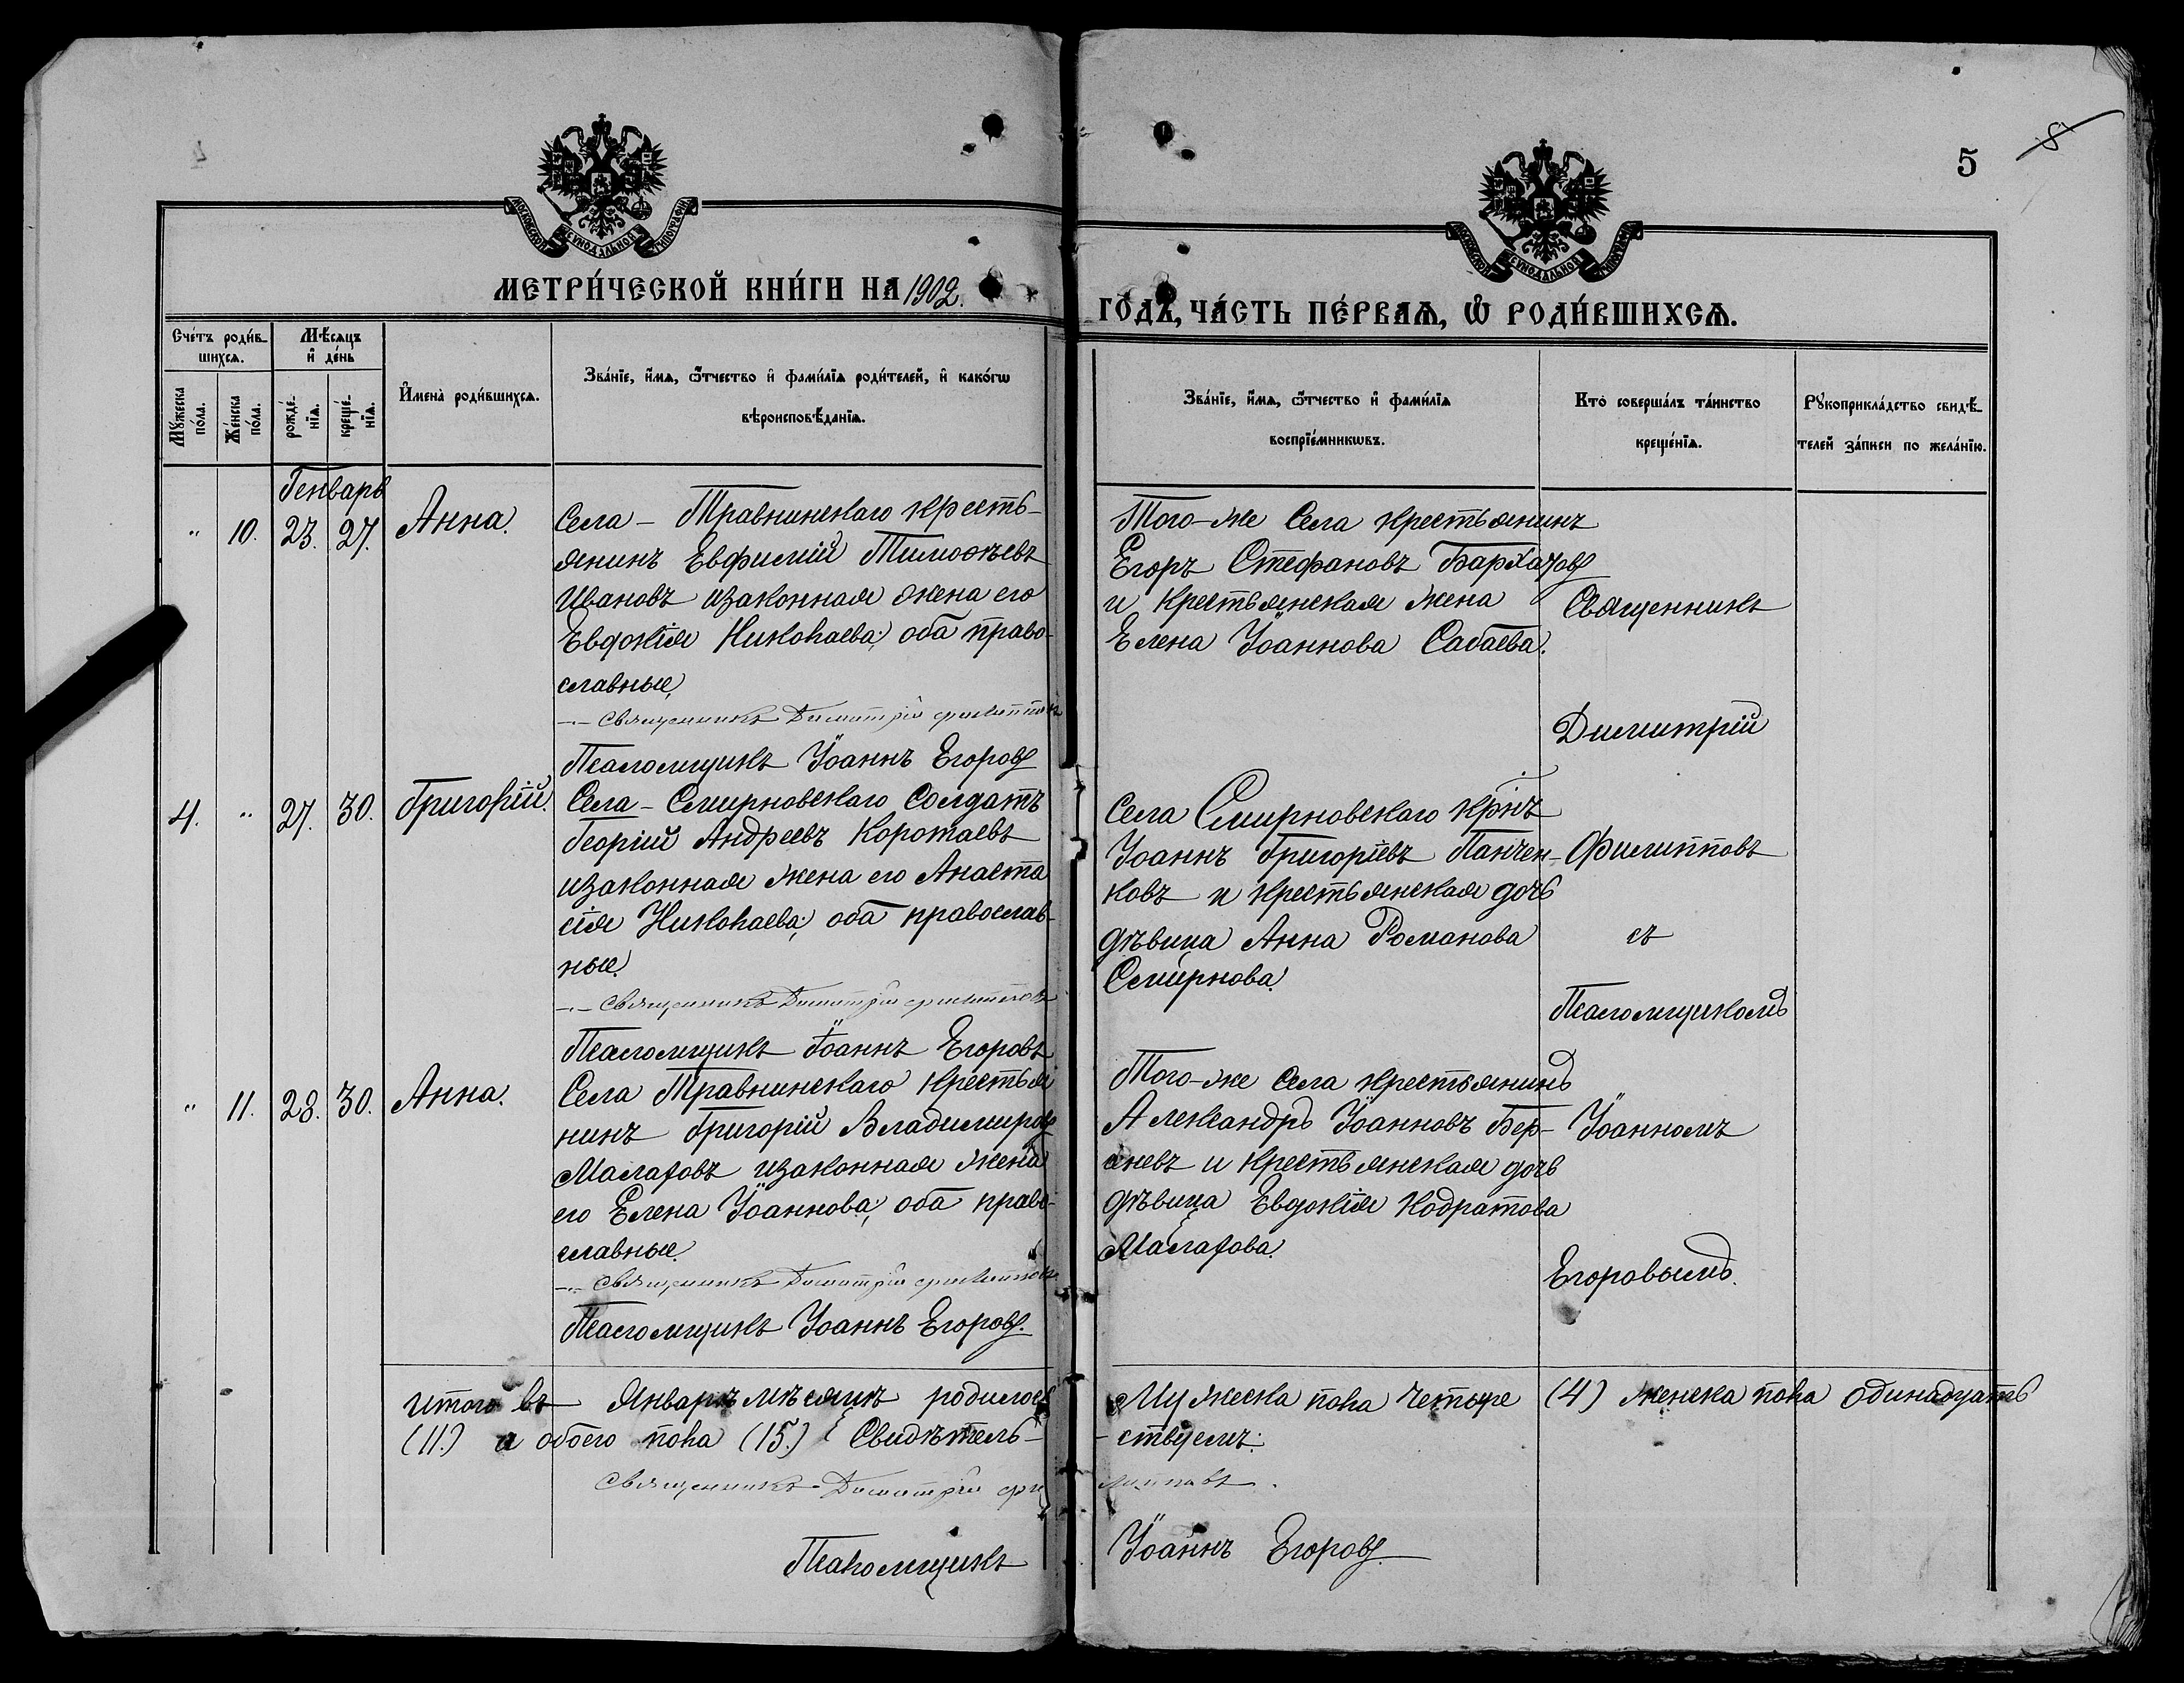 5
МОСКОВСКОЙ СѴНОДАЛЬНОЙ ТИПОГРАФІИ
МОСКОВСКОЙ СѴНОДАЛЬНОЙ ТИПОГРАФІИ
МЕТРИ́ЧЕСКОЙ КНИ́ГИ НА 1902.
ГО́ДЪ, ЧА́СТЬ ПЕ́РВАѦ, Ѡ РОДИ́ВШИХСѦ.
Сче́тъ роди́в-
шихсѧ.
Мѣ́сѧцъ
и҆ де́нь
Мꙋ́жеска
по́ла.
Же́нска
по́ла.
рожде́-
нїѧ.
креще́-
нїѧ.
И҆мена̀ роди́вшихсѧ.
Зва́нїе, и҆́мѧ, ѻ҆́тчество и҆ фами́лїѧ роди́телей, и҆ како́гѡ
вѣроисповѣ́данїѧ.
Зва́нїе, и҆́мѧ, ѻ҆́тчество и҆ фами́лїѧ
воспрїе́мникѡвъ.
Кто̀ соверша́лъ та́инство
креще́нїѧ.
Рꙋкоприкла́дство свидѣ́-
телей за́писи по жела́нїю.
Генварь
" 10. 23. 27. Анна.
Села - Травнинскаго кресть-
янинъ Евфимій Тимоѳѣевъ
Ивановъ изаконная жена его
Евдокія Николаева; оба право-
славные,
Священникъ Димитрій Филипповъ
Псаломщикъ Іоаннъ Егоровъ
Того-же Села крестьянинъ
Егоръ Стефановъ Бархатовъ
и крестьянская жена
Елена Іоаннова Сабаева.
Священникъ
Димитрій
Филипповъ
съ
Псаломщикомъ
Іоанномъ
Егоровымъ.
4. " 27. 30. Григорій.
Села - Смирновскаго Солдатъ
Георгій Андреевъ Коротаевъ
изаконная жена его Анаста
сія Николаева; оба православ-
ные.
Священникъ Димитрій Филипповъ
Псаломщикъ Іоаннъ Егоровъ
Села Смирновскаго крнъ
Іоаннъ Григоріевъ Панчен-
ковъ и крестьянская дочь
дѣвица Анна Романова
Смирнова.
" 11. 28. 30. Анна.
Села Травнинскаго крестья
нинъ Григорій Владимировъ
Малаховъ изаконная жена
его Елена Іоаннова; оба право-
славные.
Священникъ Димитрій Филипповъ
Псаломщикъ Іоаннъ Егоровъ.
Того-же Села крестьянинъ
Александръ Іоанновъ Бер-
сневъ и крестьянская дочь
дѣвица Евдокія Кодратова
Малахова.
Итого въ Январѣ мѣсяцѣ родилось Мужеска пола четыре (4) женска пола одинадцать
(11.) а обоего пола (15.) Свидѣтель-ствуемъ:
Священникъ Димитрій Филипповъ.
Псаломщикъ Іоаннъ Егоровъ.